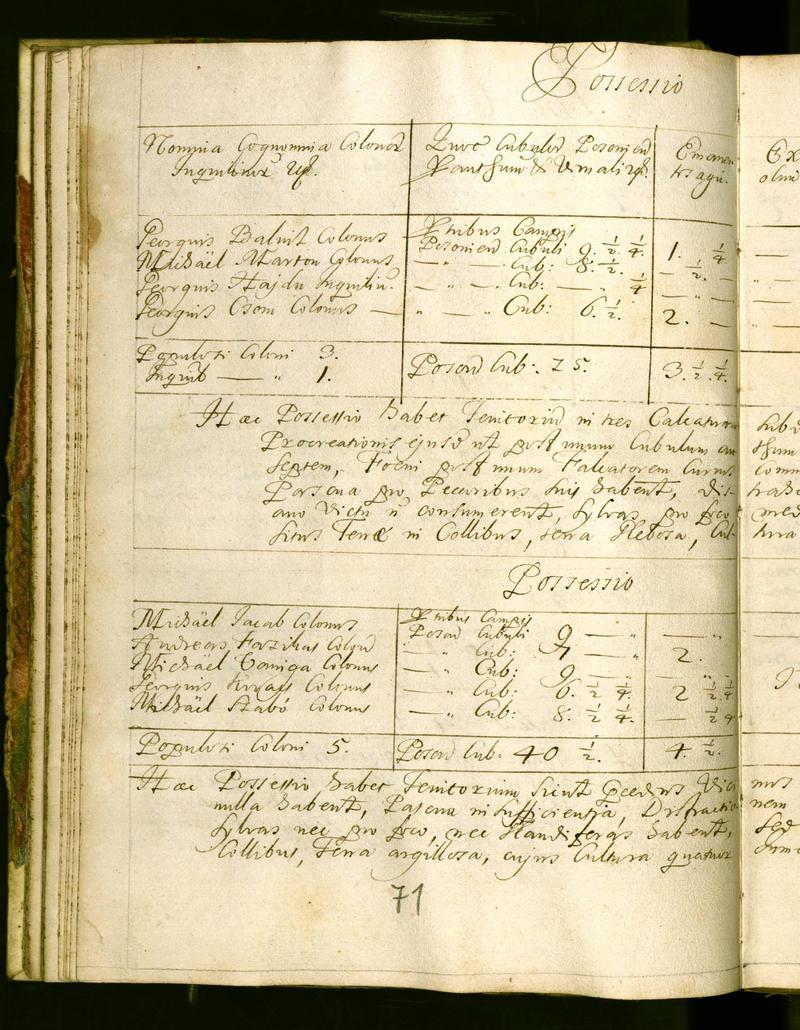 Possessio
Nomina Cognomina Colonor
Inquilinor
Quot Cubulos Posonien
Emanen
tes agri.
Georgius Balint Colonus
Michaël Marton Colonus
Georgius Hajdu Inquilin
Georgius Csom Colonus —
tribus Campis
Posonien Cubuli 9. ½ ¼
— " — Cub: 8. ½.
— " — Cub: — " ¼
" — " Cub: 6. ½.
1. ¼
— ½. —
— " —
2. —
Populosi Coloni 3.
Inquil — " 1.
Poson Cub: 25.
3. ½. ¼.
Hæc Possessio habet Teritoriu in tres Calcaturas
Procreationis ejusd ut post unum Cubulum
septem, Foeni post unum Falcatorem Currus
Pascua pro Pecoribus suis habent, Dis-
consumerent, sylvas, pro foco
situs Terræ in Collibus, terra Glebosa, Cul-
Possessio
Michaël Jacab Colonus
Andreas Fazikas Colon
Michaël Colonus
Georgius Colonus
Michaël Szabó Colonus
tribus Campis
Poson Cubuli 9 — "
— " Cub: 7 — "
— " Cub: 9 — "
— " Cub: 6. ½ ¼.
— " Cub: 8. ½ ¼.
— "
2.
2 ½ ¼
— ½ ¼
Populosi Coloni 5.
Poson Cub. 40 ½.
4. ½.
Hæc Possessio habet Teritorium sicut
nulla habent, Pascua in sufficientia, Distractio
sylvas nec pro foco, nec Glandiferas habent,
Collibus, Terra argillosa, cujus Cultura quatuor
71